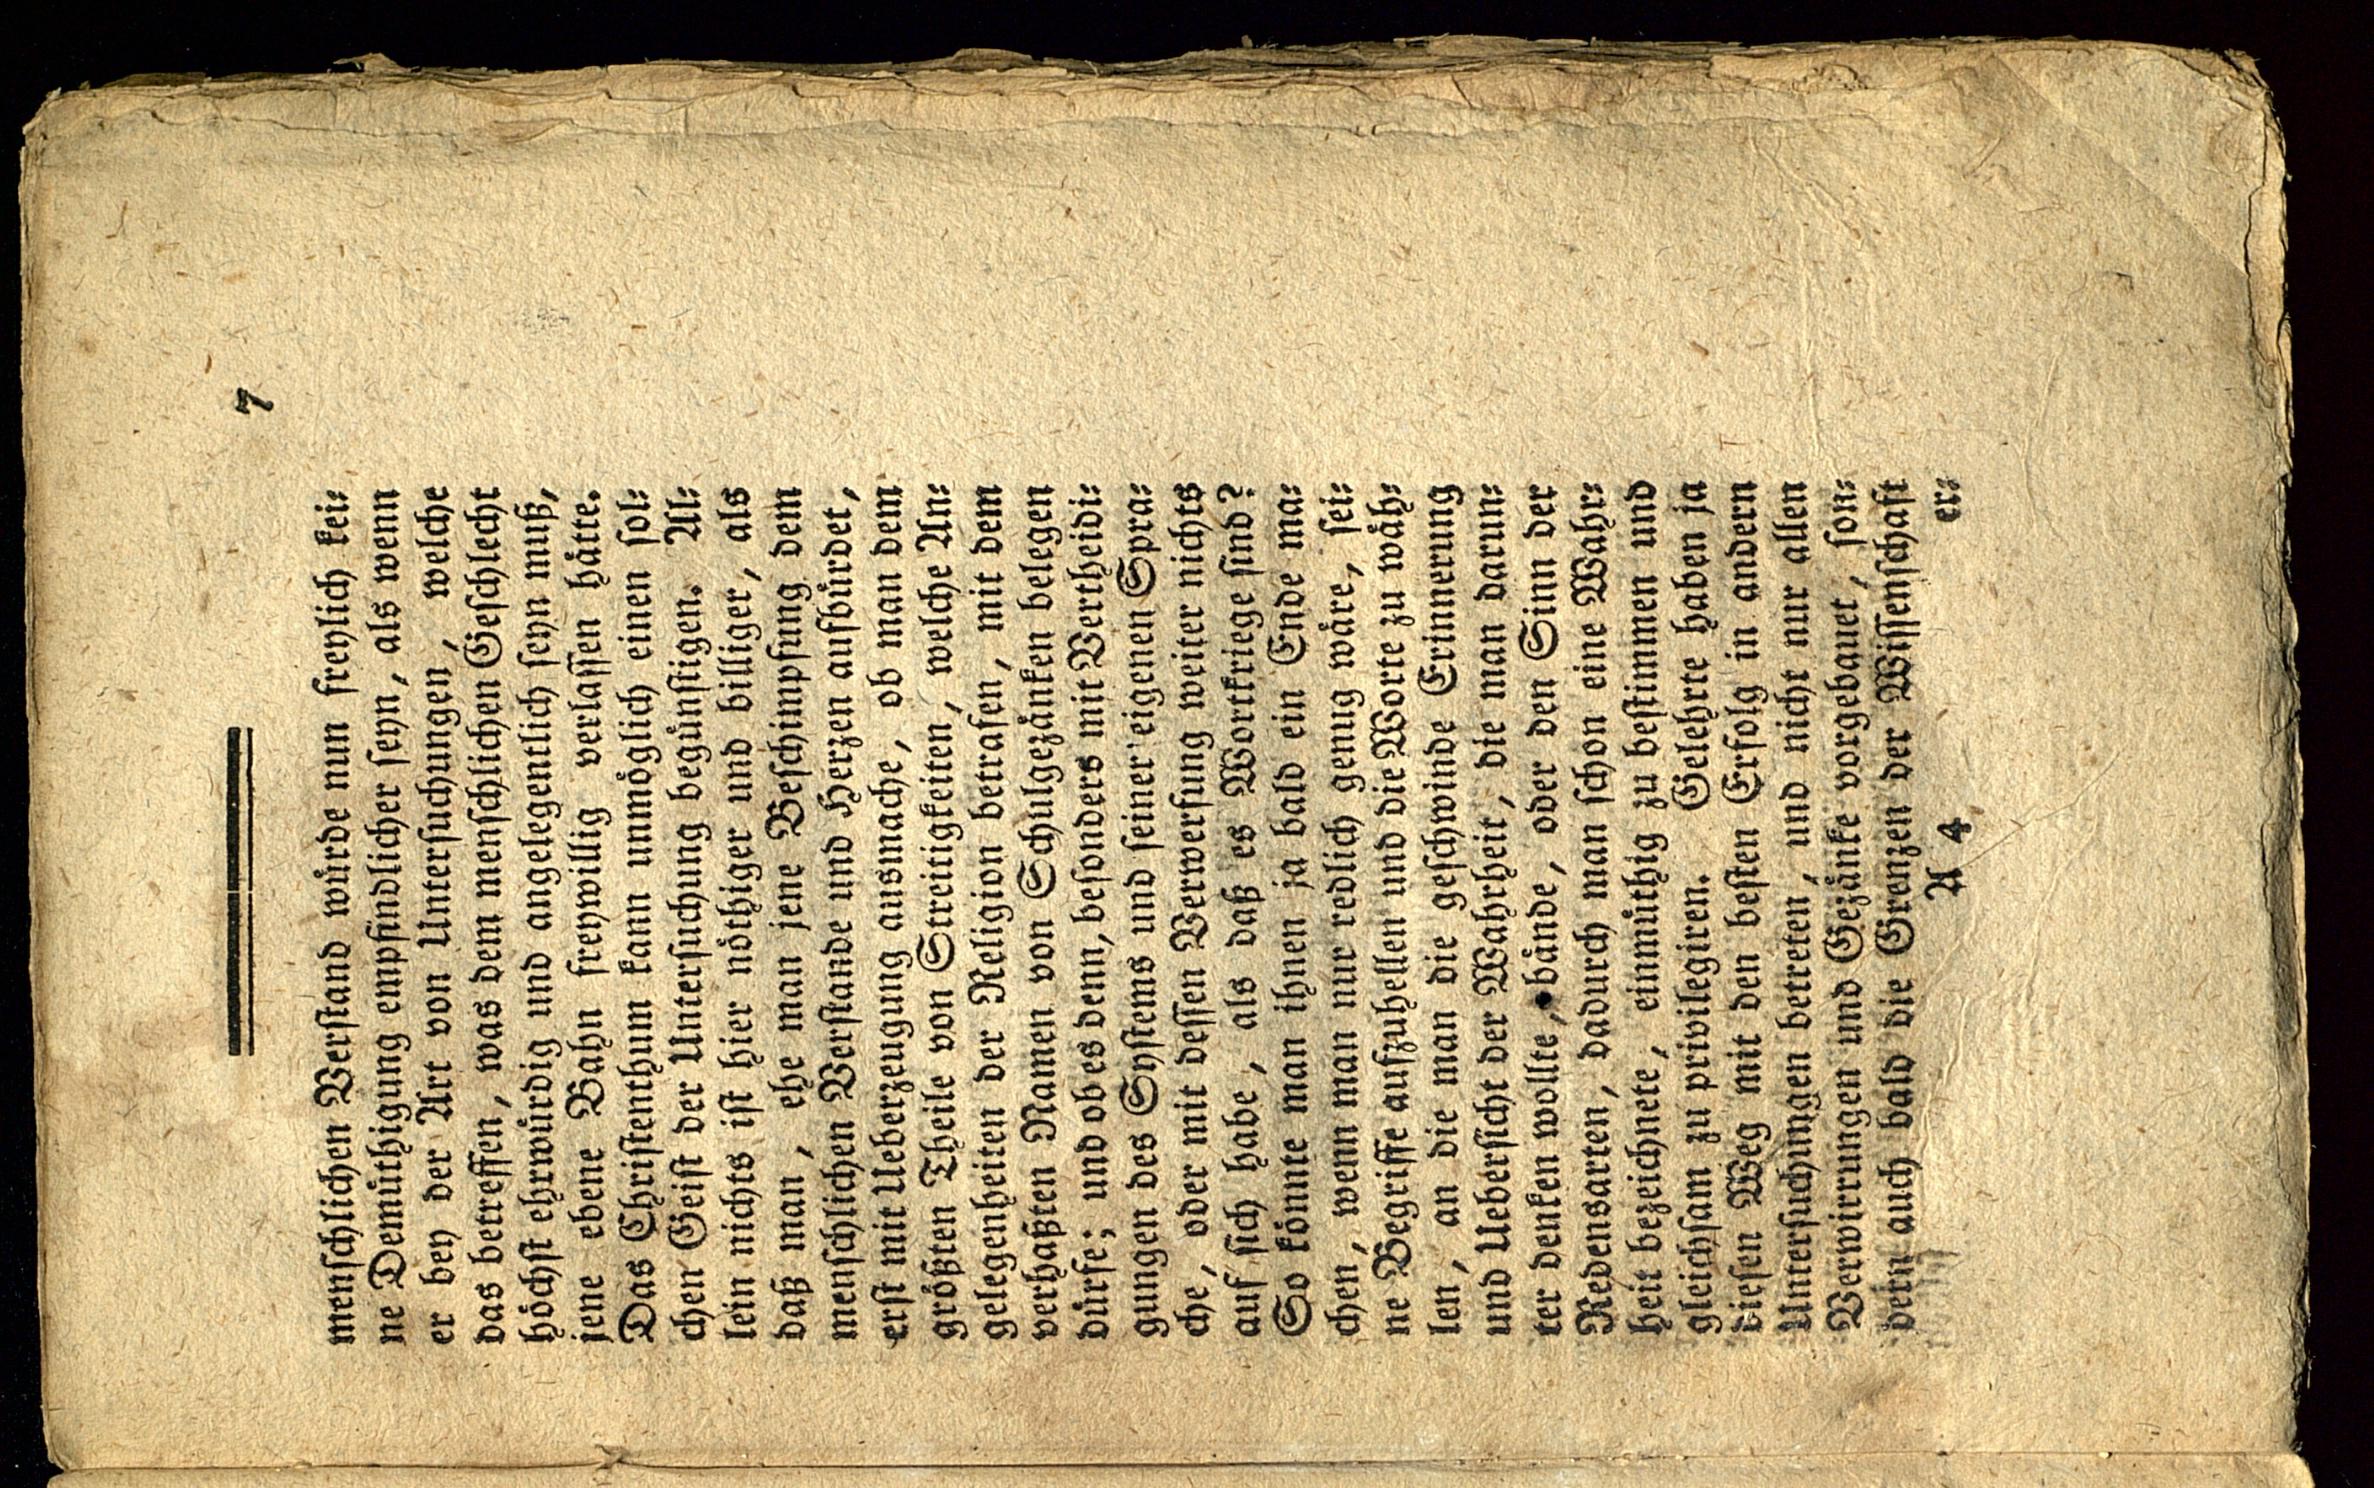 7
menschlichen Verstand würde nun freylich kei-
ne Demüthigung empfindlicher seyn, als wenn
er bey der Art von Untersuchungen, welche
das betreffen, was dem menschlichen Geschlecht
höchst ehrwürdig und angelegentlich seyn muß,
jene ebene Bahn freywillig verlassen hätte.
Das Christenthum kann unmöglich einen sol-
chen Geist der Untersuchung begünstigen. Al-
lein nichts ist hier nöthiger und billiger, als
daß man, ehe man jene Beschimpfung dem
menschlichen Verstande und Herzen aufbürdet,
erst mit Ueberzeugung ausmache, ob man dem
größten Theile von Streitigkeiten, welche An-
gelegenheiten der Religion betrafen, mit dem
verhaßten Namen von Schulgezänken belegen
dürfe; und ob es denn, besonders mit Vertheidi-
gungen des Systems und seiner eigenen Spra-
che, oder mit dessen Verwerfung weiter nichts
auf sich habe, als daß es Wortkriege sind?
So könnte man ihnen ja bald ein Ende ma-
chen, wenn man nur redlich genug wäre, sei-
ne Begriffe aufzuhellen und die Worte zu wäh-
len, an die man die geschwinde Erinnerung
und Uebersicht der Wahrheit, die man darun-
ter denken wollte, bände, oder den Sinn der
Redensarten, dadurch man schon eine Wahr-
heit bezeichnete, einmüthig zu bestimmen und
gleichsam zu privilegiren. Gelehrte haben ja
diesen Weg mit den besten Erfolg in andern
Untersuchungen betreten, und nicht nur allen
Verwirrungen und Gezänke vorgebauet, son-
dern auch bald die Grenzen der Wissenschaft
A 4 er-